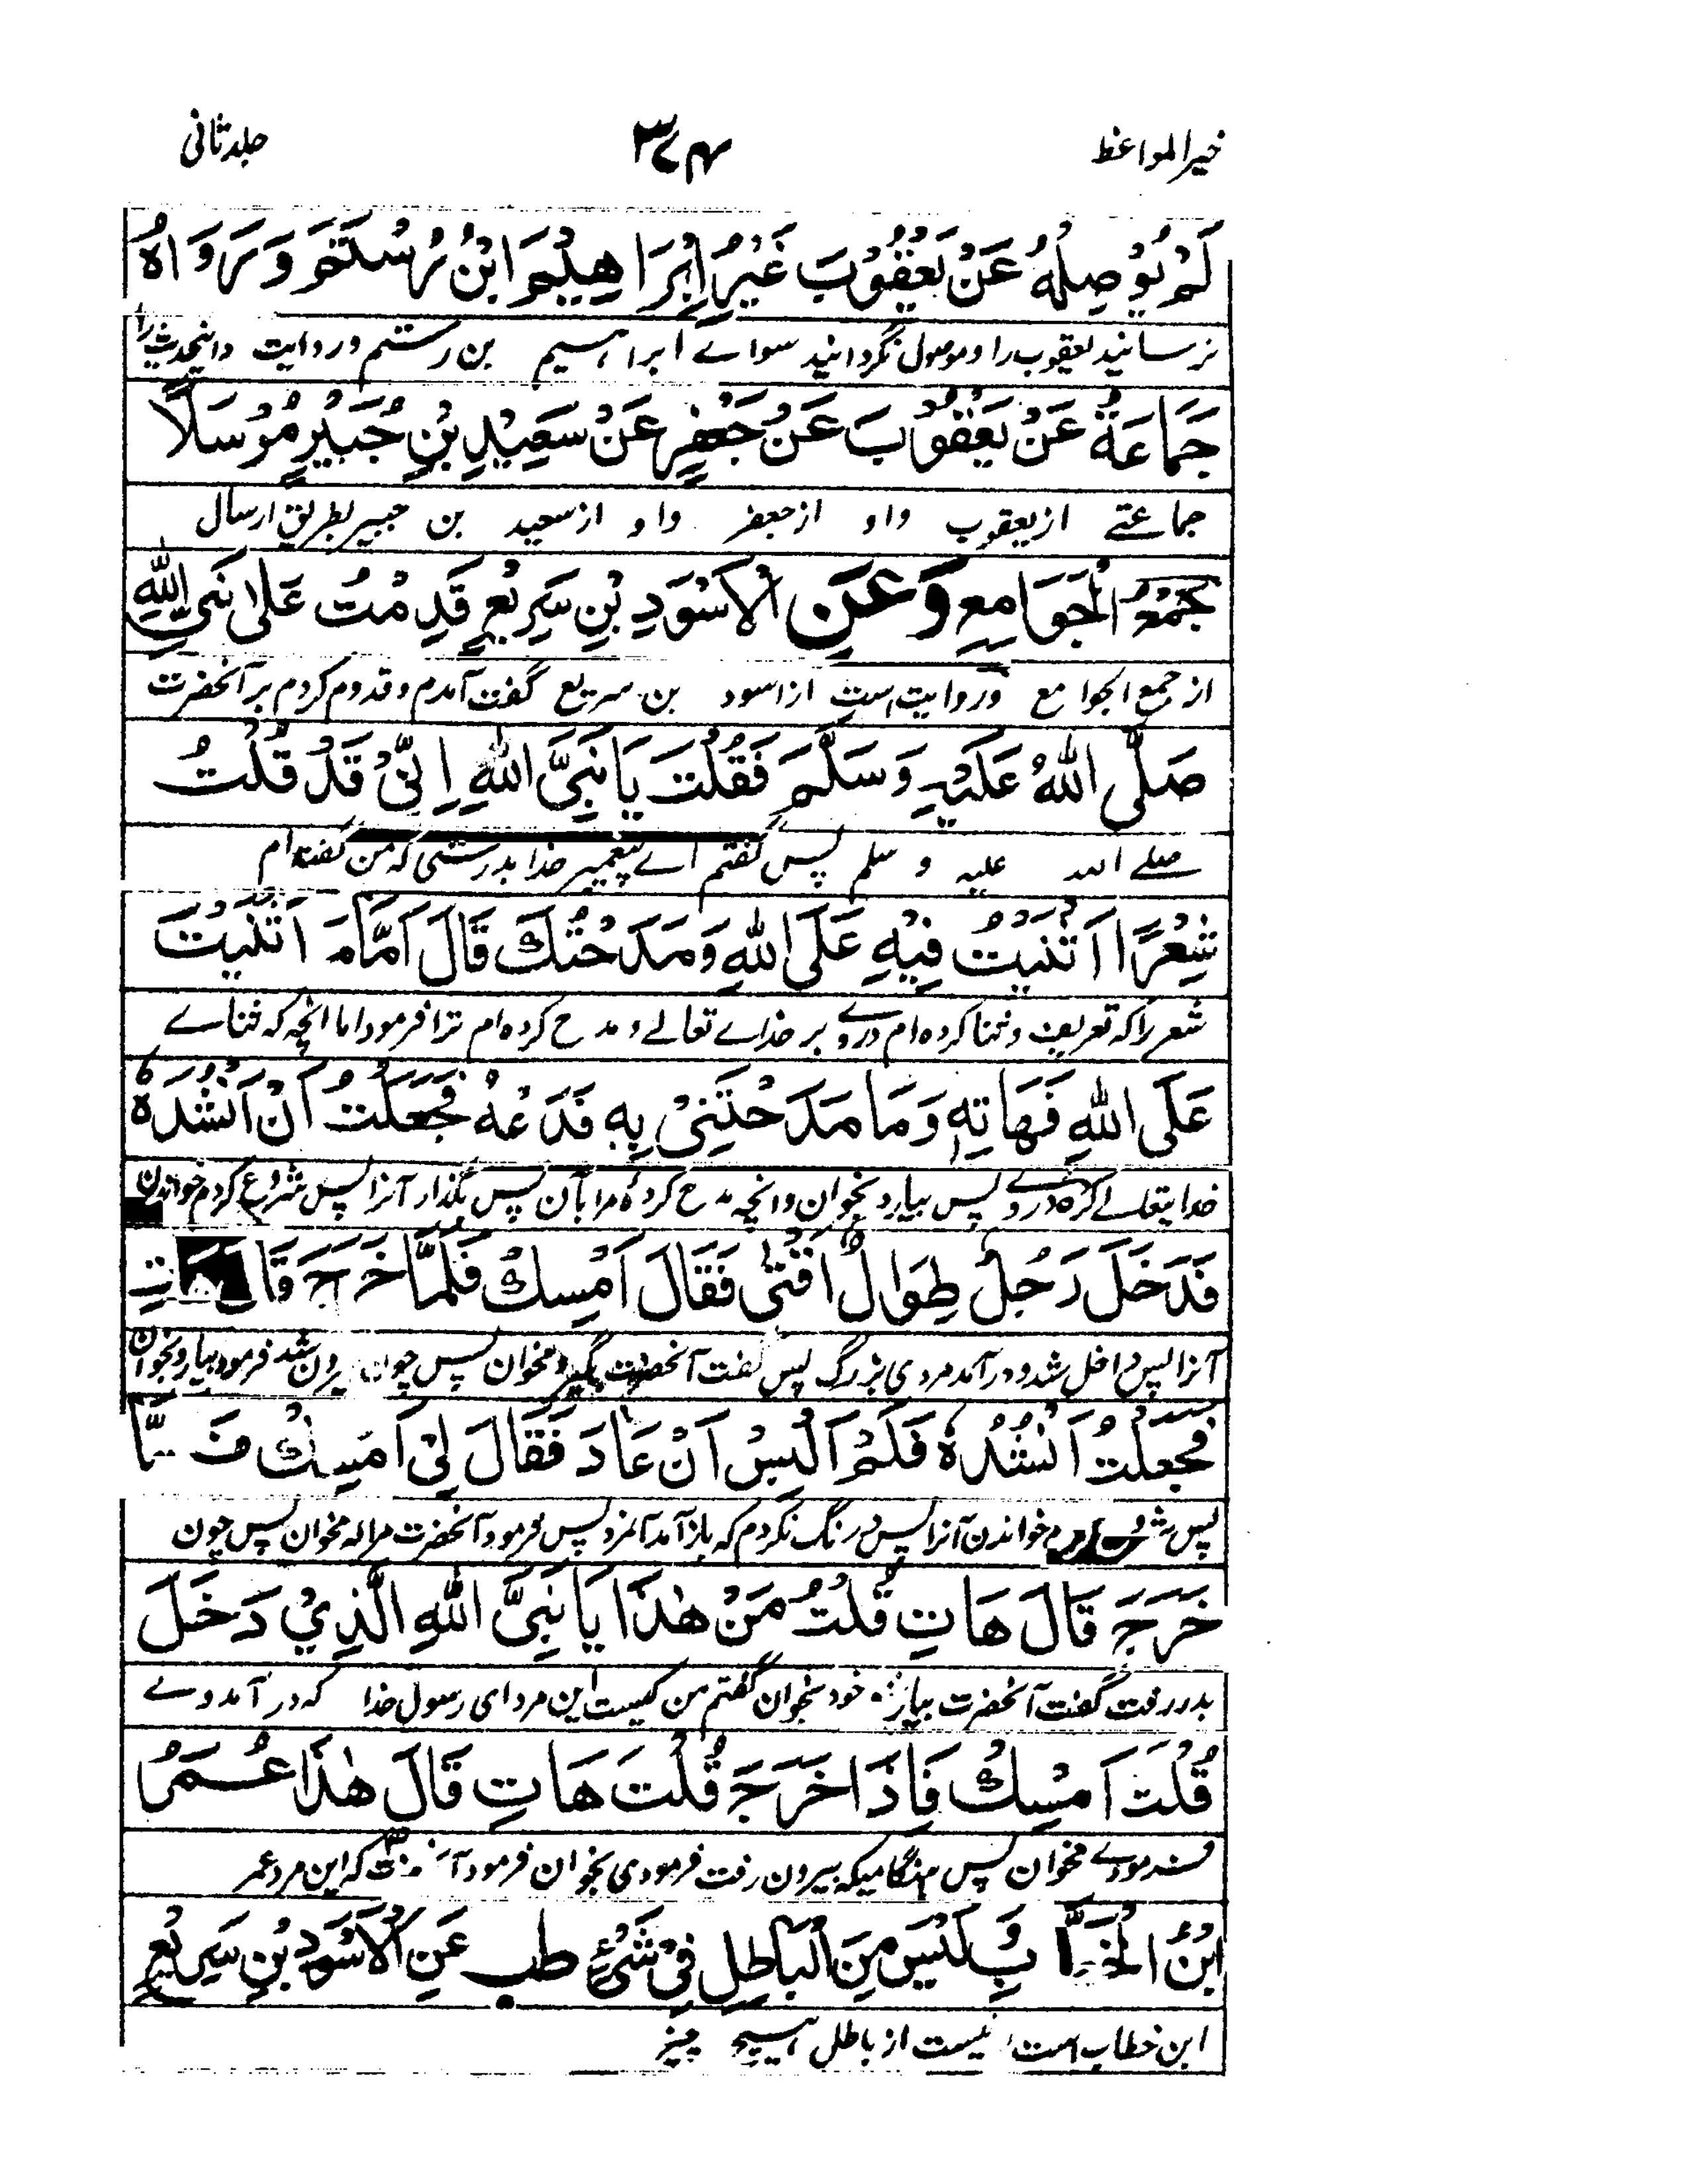 خیرالمواعظ
۳۷۴
جلد ثانی
لَمْ يُوْصِلْهُ عَنْ يَعْقُوْبَ غَيْرُ اِبْرَاهِيْمَ ابْنُ رُسْتَمَ وَرَوَاهُ
نرسانید یعقوب را و موصول نگردانید سواے ابراہیم بن رستم و روایت داینحدیث را
جَمَاعَةٌ عَنْ يَعْقُوْبَ عَنْ جَعْفَرٍ عَنْ سَعِيْدِ بْنِ جُبَيْرٍ مُرْسَلًا
جماعتے از یعقوب واو از جعفر واو از سعید بن جبیر بطریق ارسال
جَمْعُ الْجَوَامِعِ وَعَنِ الْاَسْوَدِ بْنِ سَرِيْعٍ قَدِمْتُ عَلٰی نَبِيِّ اللّٰهِ
از جمع الجوامع و روایت است از اسود بن سریع گفت آمدم و قدوم کردم بر آنحضرت
صَلَّى اللّٰهُ عَلَيْهِ وَسَلَّمَ فَقُلْتَ يَا نَبِيَّ اللّٰهِ اِنِّيْ قَدْ قُلْتُ
صلے اللہ علیہ و سلم پس گفتم اے پیغمبر خدا بدرستی که من گفته ام
شِعْرًا اَثْنَيْتُ فِيْهِ عَلَى اللّٰهِ وَمَدَحْتُكَ قَالَ اَمَّا مَا اَثْنَيْتَ
شعر را که تعریف و ثنا کرده ام دروے بر خداے تعالے و مدح کرده ام ترا فرمود اما انچه که ثناے
عَلَى اللّٰهِ فَهَاتِهِ وَمَا مَدَحْتَنِيْ بِهِ فَدَعْهُ فَجَعَلْتُ اَنْ اَنْشُدَهُ
خدایتعالے کردہ دروے پس بیار و بخوان وانچه مدح کردۀ مرا بآن پس بگذار آنرا پس شروع کردم خواندن
فَدَخَلَ رَجُلٌ طِوَالٌ اَقْنٰى فَقَالَ اَمْسِكْ فَلَمَّا خَرَجَ قَالَ هَاتِ
آنرا پس داخل شد و درآمد مردی بزرگ پس گفت آنحضرت بگیر و مخوان پس چون بیرون شد فرمود بیار و بخوان
فَجَعَلْتُ اَنْشُدُهُ فَلَمْ اَلْبَسْ اَنْ عَادَ فَقَالَ لِيْ اَمْسِكْ فَلَمَّا
پس شروع کردم خواندن آنرا پس درنگ نکردم که باز آمد آنمرد پس فرمود آنحضرت مرا که مخوان پس چون
خَرَجَ قَالَ هَاتِ قُلْتُ مَنْ هٰذَا يَا نَبِيَّ اللّٰهِ الَّذِيْ دَخَلَ
بدر رفت گفت آنحضرت بیار خود بخوان گفتم من کیست این مرد ای رسول خدا که درآمد وے
قُلْتَ اَمْسِكْ فَاِذَا خَرَجَ قُلْتَ هَاتِ قَالَ هٰذَا عُمَرُ
فرمودے مخوان پس ہنگامیکه بیرون رفت فرمودی بخوان فرمود آنحضرت که این مرد عمر
ابْنُ الْخَطَّابِ لَيْسَ مِنَ الْبَاطِلِ فِيْ شَيْءٍ طب عَنِ الْاَسْوَدِ بْنِ سَرِيْعٍ
ابن خطاب است نیست از باطل ہیچ چیز